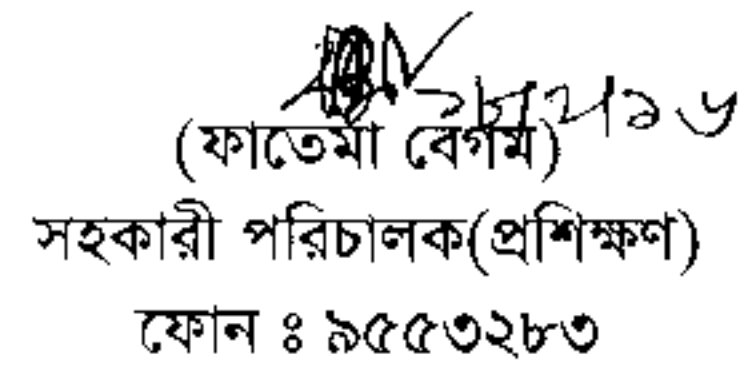 (ফাতেমা বেগম)
সহকারী পরিচালক(প্রশিক্ষণ)
ফোন ঃ ৯৫৫৩২৮৩